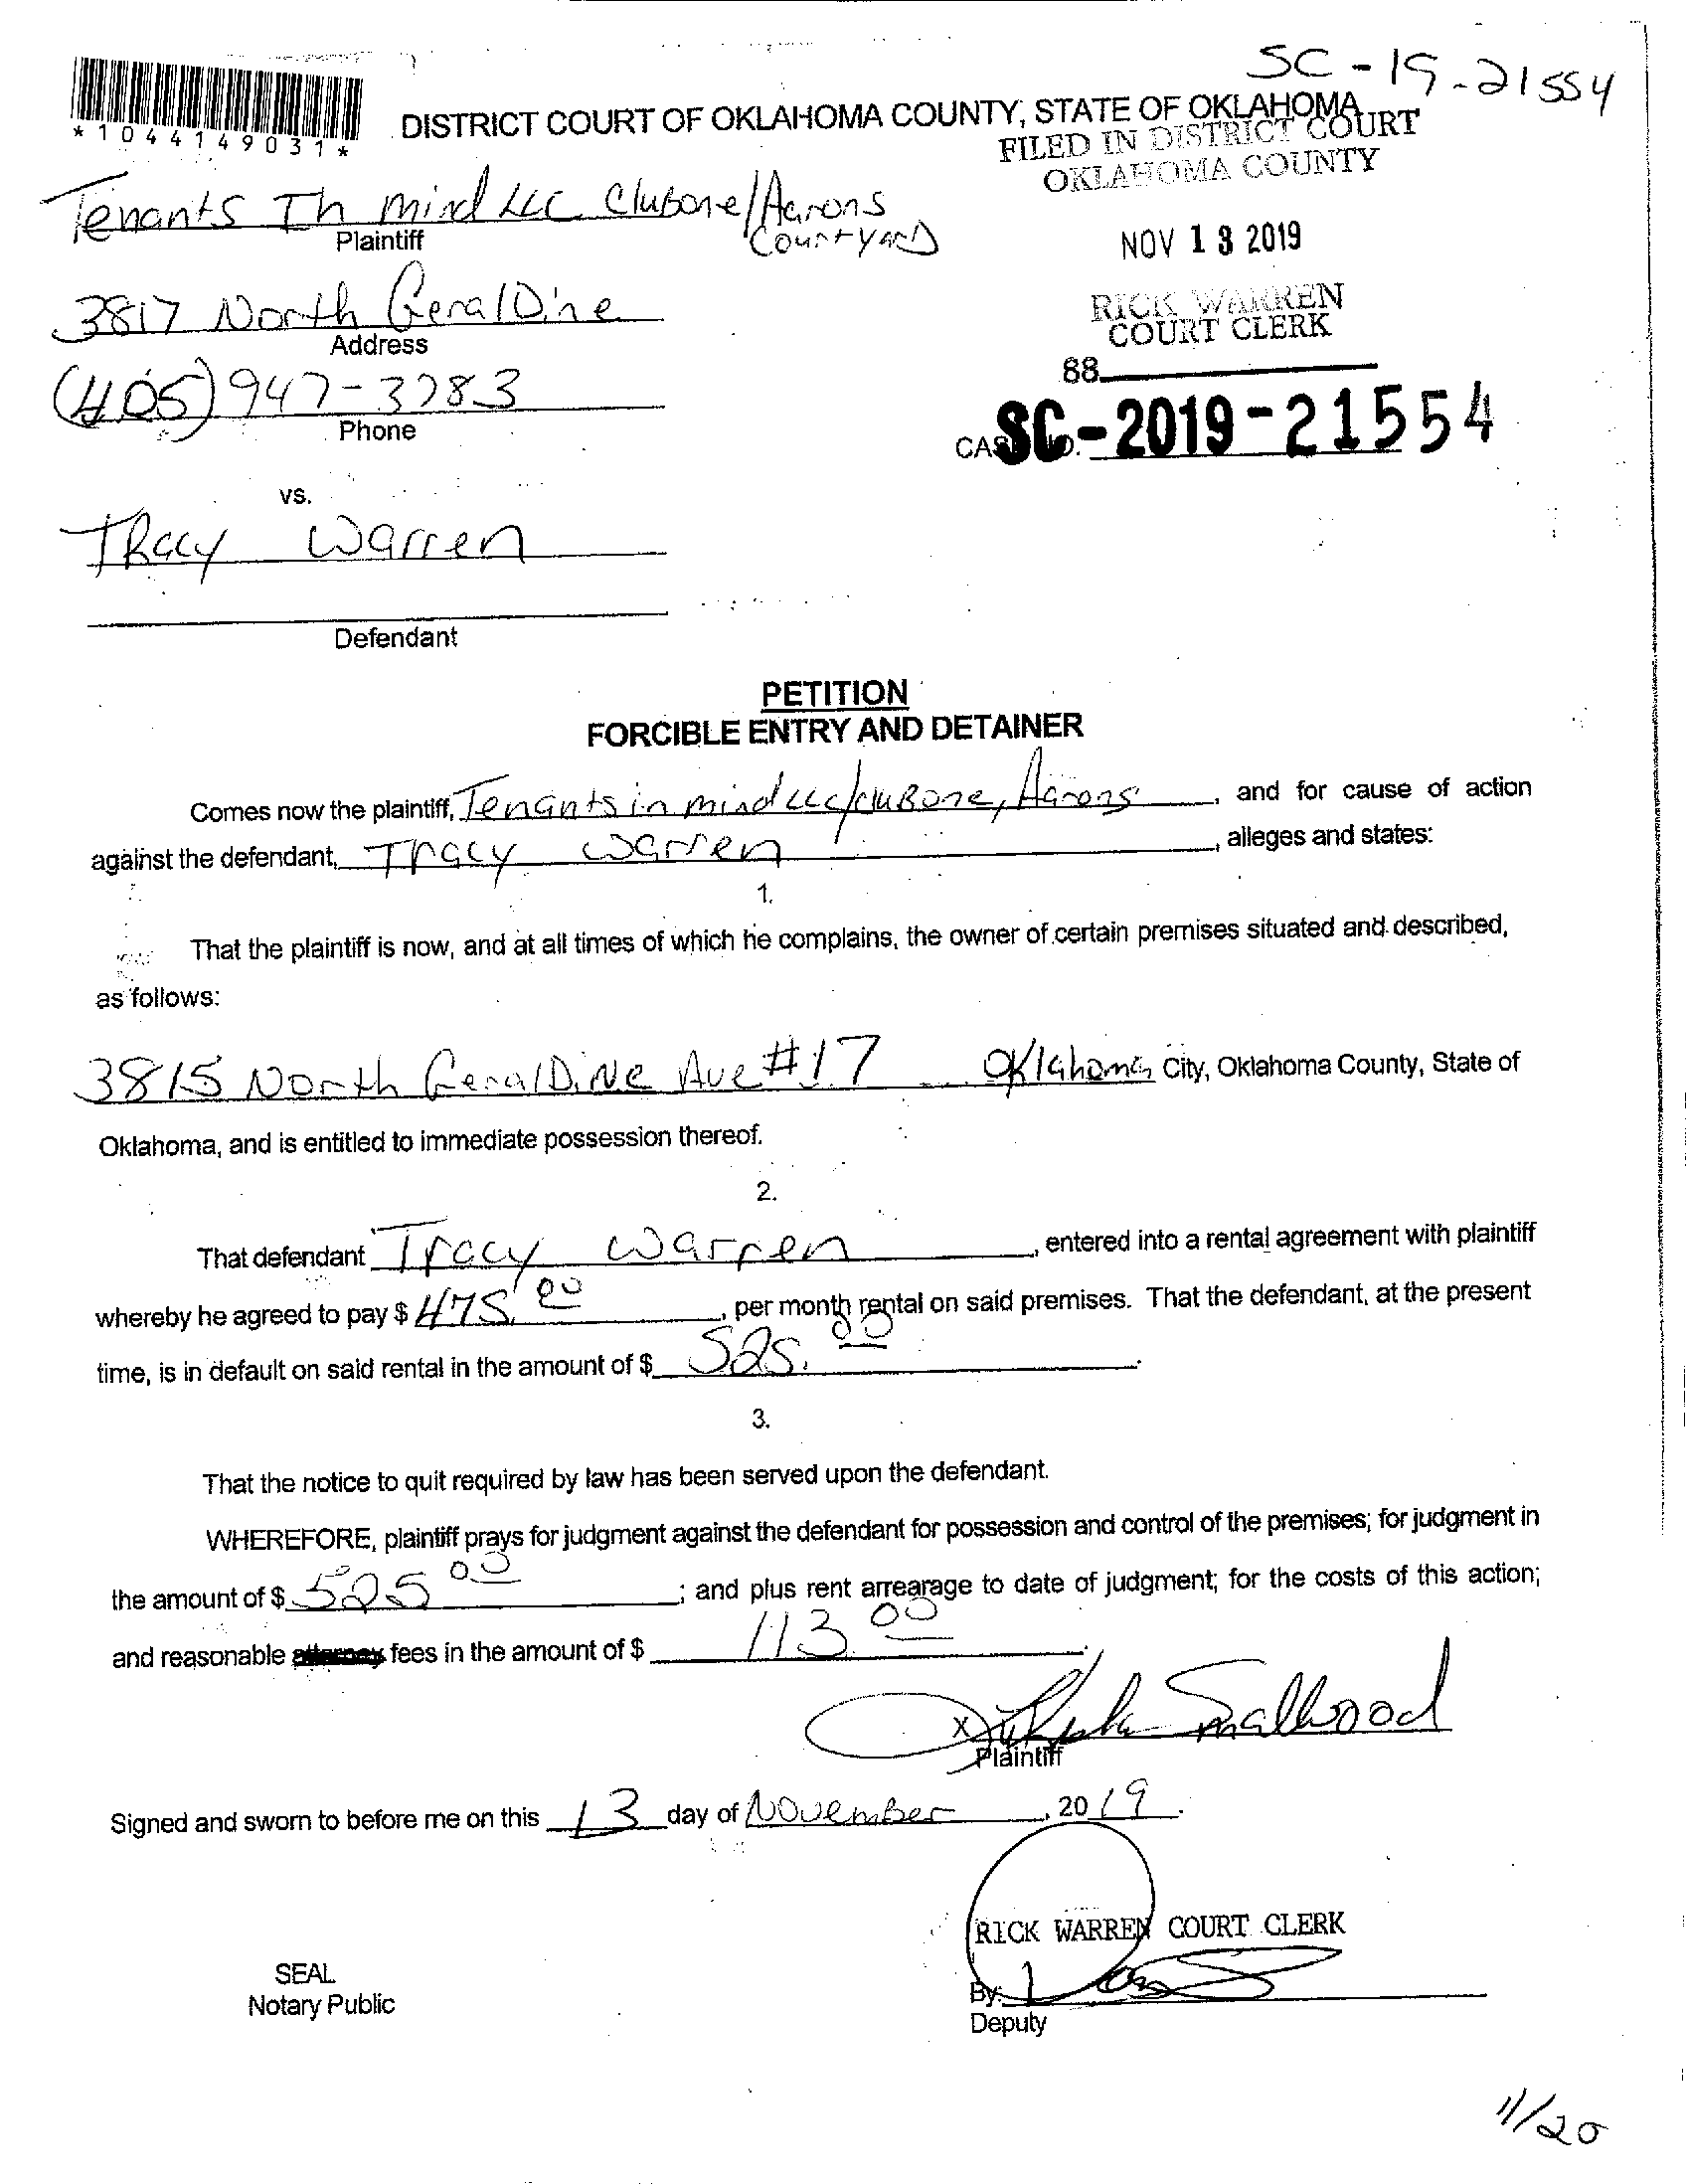 SC-19-21554
*1044149031*
DISTRICT COURT OF OKLAHOMA COUNTY, STATE OF OKLAHOMA
FILED IN DISTRICT COURT
OKLAHOMA COUNTY
Tenants In mind LLC Clubone/Aarons
Courtyard
Plaintiff
NOV 13 2019
3817 North GeralDine
Address
RICK WARREN
COURT CLERK
(405) 947-3783
Phone
88
CASE NO. SC-2019-21554
vs.
TRacy Warren
Defendant
PETITION
FORCIBLE ENTRY AND DETAINER
Comes now the plaintiff, Tenants in mind LLC/cluBone, Aarons, and for cause of action
against the defendant, Tracy Warren, alleges and states:
1.
That the plaintiff is now, and at all times of which he complains, the owner of certain premises situated and described,
as follows:
3815 North GeralDiNe Ave #17 Oklahoma City, Oklahoma County, State of
Oklahoma, and is entitled to immediate possession thereof.
2.
That defendant Tracy Warren, entered into a rental agreement with plaintiff
whereby he agreed to pay $ 475.00, per month rental on said premises. That the defendant, at the present
time, is in default on said rental in the amount of $ 525.00.
3.
That the notice to quit required by law has been served upon the defendant.
WHEREFORE, plaintiff prays for judgment against the defendant for possession and control of the premises; for judgment in
the amount of $ 525 00; and plus rent arrearage to date of judgment; for the costs of this action;
and reasonable attorney fees in the amount of $ 113 00.
x Smallwood
Plaintiff
Signed and sworn to before me on this 13 day of November, 2019.
RICK WARREN COURT CLERK
SEAL
Notary Public
By:
Deputy
11/20